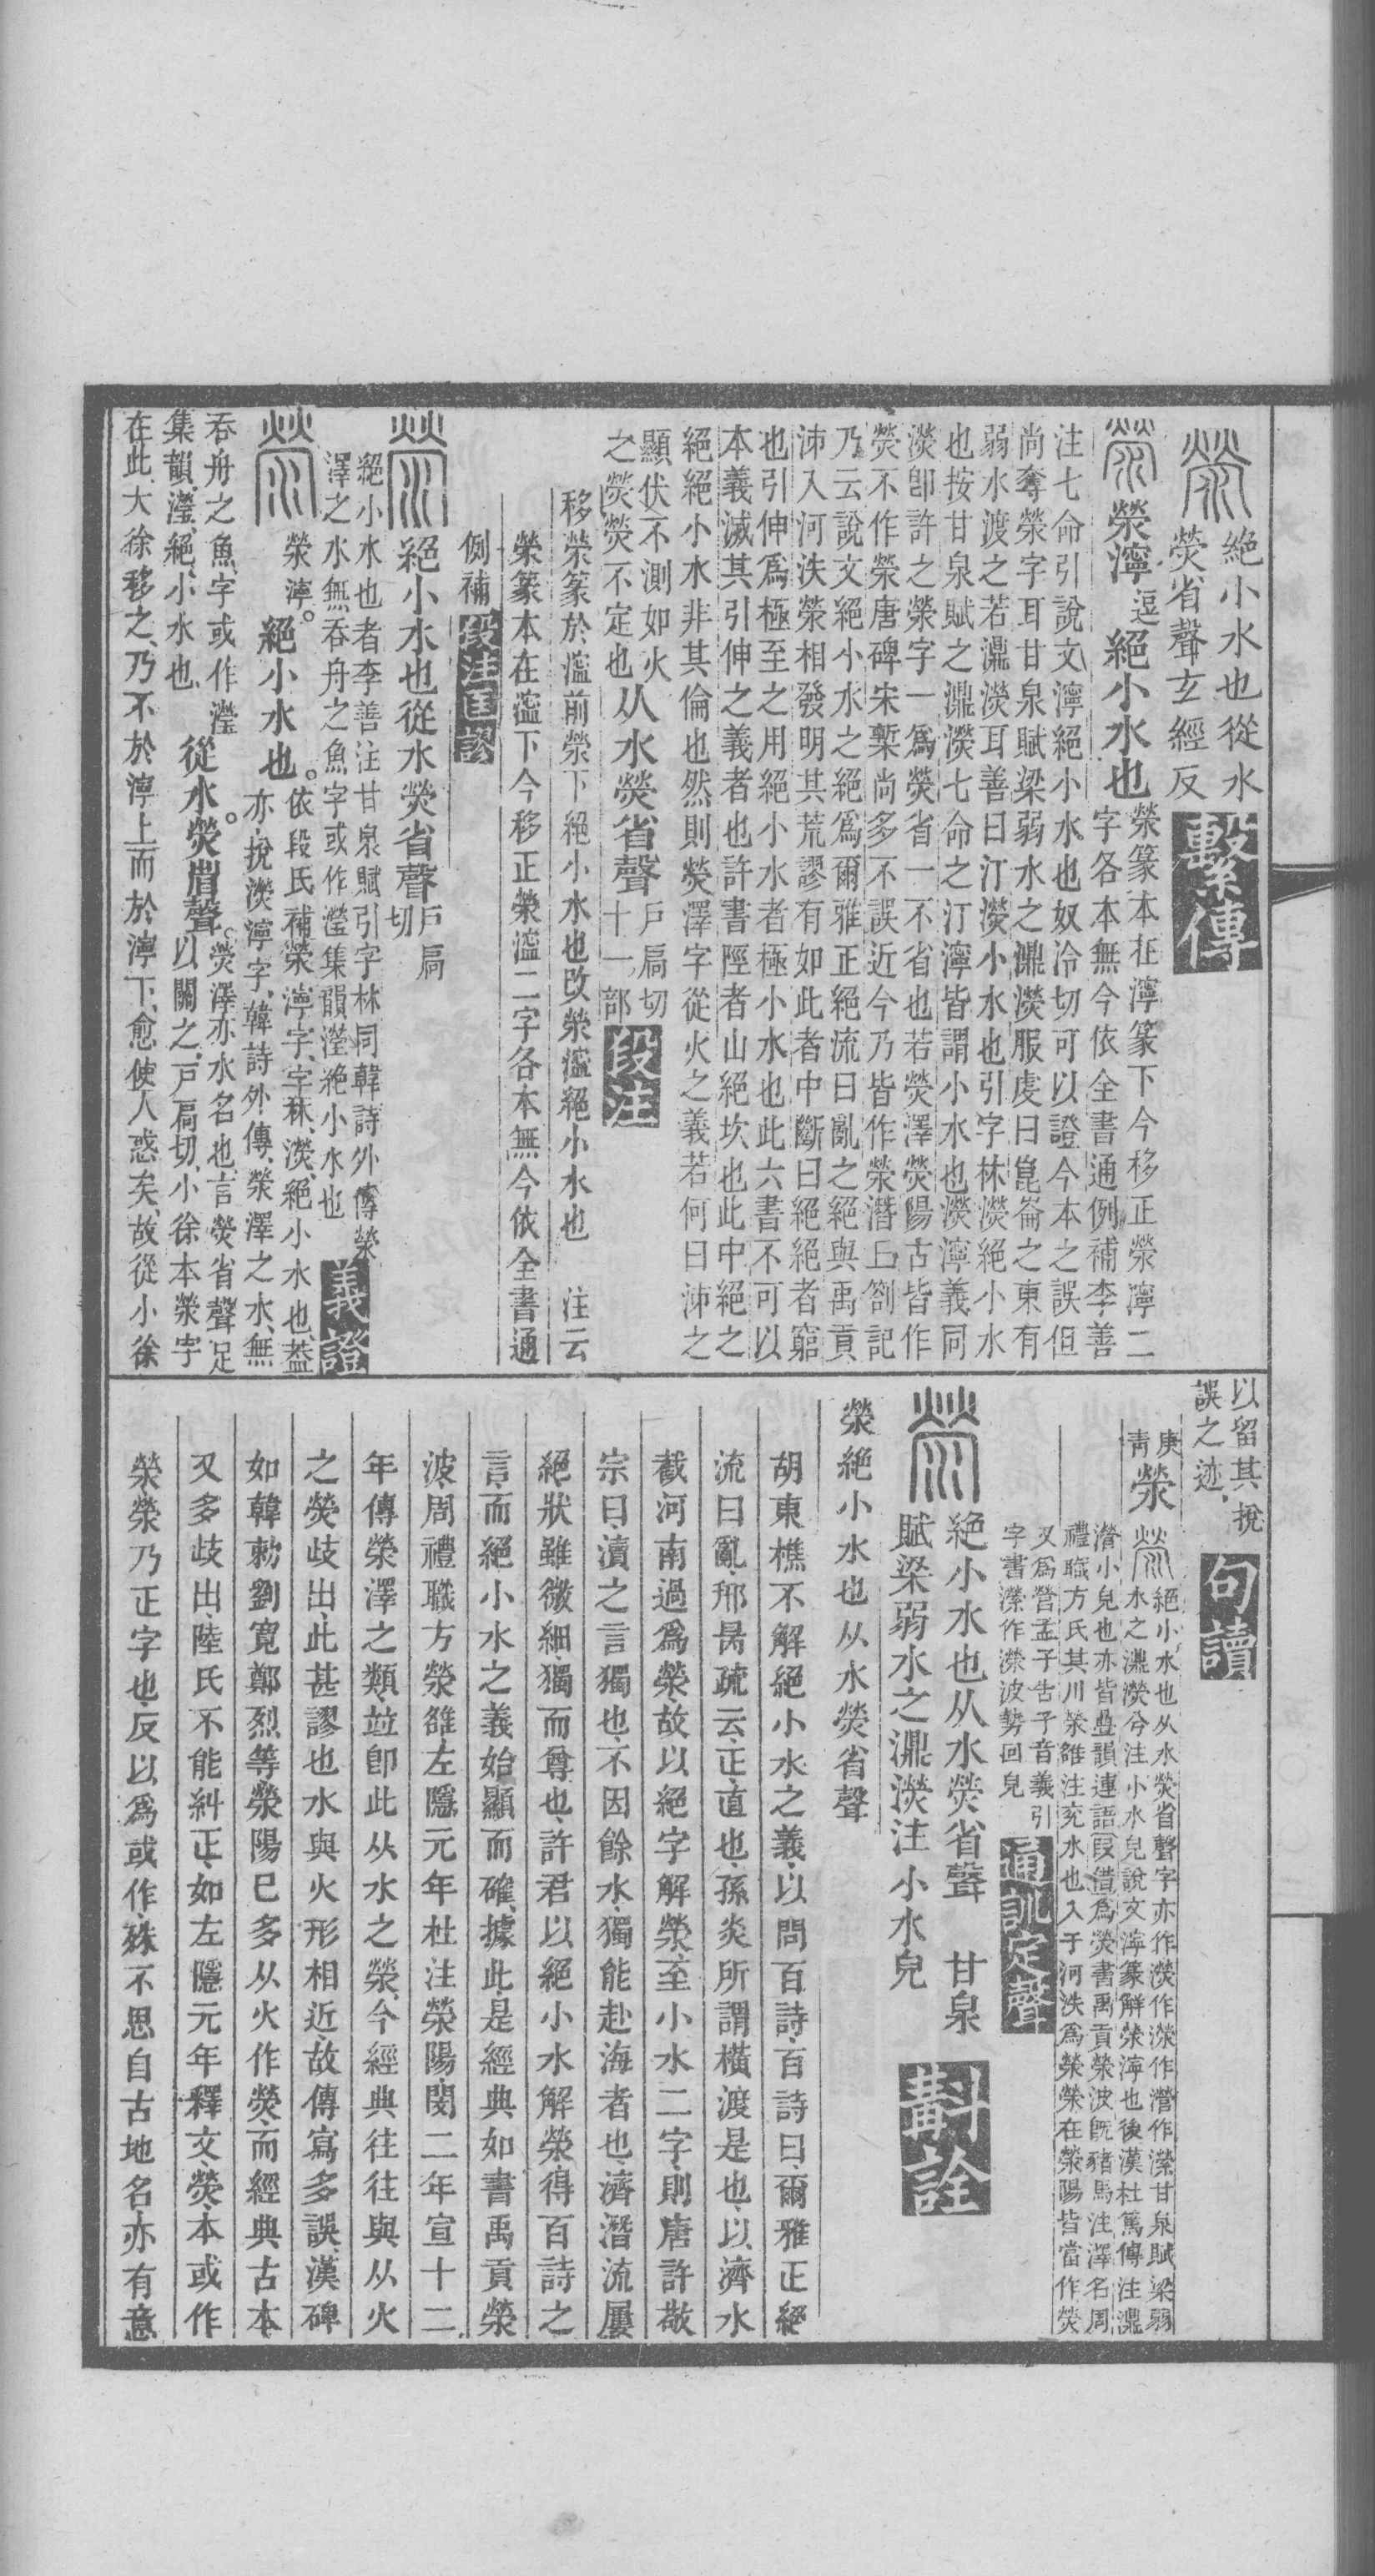 絕小水也從水
熒省聲玄經反
繫傳
滎濘
逗
絕小水也
滎篆本在濘篆下今移正滎濘二
字各本無今依全書通例補李善
注七命引說文濘絕小水也奴冷切可以證今本之誤但
尚奪滎字耳甘泉賦梁弱水之濎濙服虔曰崑崙之東有
弱水渡之若濎濙耳善曰汀濙小水也引字林濙絕小水
也按甘泉賦之濎濙七命之汀濘皆謂小水也濙濘義同
濙卽許之滎字一爲熒省一不省也若熒澤熒陽古皆作
熒不作滎唐碑宋槧尚多不誤近今乃皆作滎潛丘劄記
乃云說文絕小水之絕爲爾雅正絕流曰亂之絕與禹貢
泲入河泆滎相發明其荒謬有如此者中斷曰絕絕者窮
也引伸爲極至之用絕小水者極小水也此六書不可以
本義滅其引伸之義者也許書陘者山絕坎也此中絕之
絕絕小水非其倫也然則熒澤字從火之義若何曰泲之
顯伏不測如火
之熒熒不定也
从水熒省聲
戶扃切
十一部
段注
移滎篆於濫前滎下絕小水也改滎濫絕小水也　注云
滎篆本在濫下今移正滎濫二字各本無今依全書通
例補
段注匡謬
絕小水也從水熒省聲
戶扃
切
絕小水也者李善注甘泉賦引字林同韓詩外傳滎
澤之水無吞舟之魚字或作瀅集韻瀅絕小水也
義證
滎濘。
絕小水也。
依段氏補滎濘字、字林、濙、絕小水也、葢
亦挩濙濘字、韓詩外傳、滎澤之水、無
吞舟之魚、字或作瀅
集韻瀅、絕小水也
從水。熒省聲。
熒澤亦水名也、言熒省聲足
以關之、戶扃切、小徐本滎字
在此、大徐移之、乃不於濘上而於濘下、愈使人惑矣、故從小徐
以留其挩
誤之迹、
句讀
庚
青
滎
絕小水也从水熒省聲字亦作濙作濴作瀯作瀠甘泉賦梁弱
水之濎濙兮注小水皃說文濘篆解滎濘也後漢杜篤傳注濎
瀯小皃也亦皆疊韻連語叚借爲熒書禹貢滎波旣豬馬注澤名周
禮職方氏其川滎雒注兖水也入于河泆爲滎滎在滎陽皆當作熒
又爲營孟子告子音義引
字書瀠作濴波勢回皃
通訓定聲
絕小水也从水熒省聲　甘泉
賦梁弱水之濎濙注小水皃
斠詮
滎絕小水也从水熒省聲
胡東樵不解絕小水之義、以問百詩、百詩曰、爾雅正絕
流曰亂、邢昺疏云、正直也、孫炎所謂橫渡是也、以濟水
截河南過爲滎、故以絕字解滎、至小水二字、則唐許敬
宗曰、瀆之言獨也、不因餘水、獨能赴海者也、濟潛流屢
絕、狀雖微細、獨而尊也、許君以絕小水解滎、得百詩之
言、而絕小水之義始顯而確、據此、是經典如書禹貢滎
波、周禮職方滎雒、左隱元年杜注滎陽、閔二年宣十二
年傳滎澤之類、竝卽此从水之滎、今經典往往與从火
之熒歧出、此甚謬也、水與火形相近、故傳寫多誤、漢碑
如韓勑劉寬鄭烈等滎陽已多从火作熒、而經典古本
又多歧出、陸氏不能糾正、如左隱元年釋文、熒、本或作
滎、滎乃正字也、反以爲或作、殊不思自古地名、亦有意